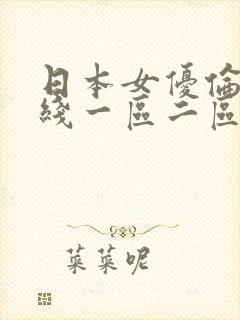 日本女優倫
綫一區二區
菜菜呢